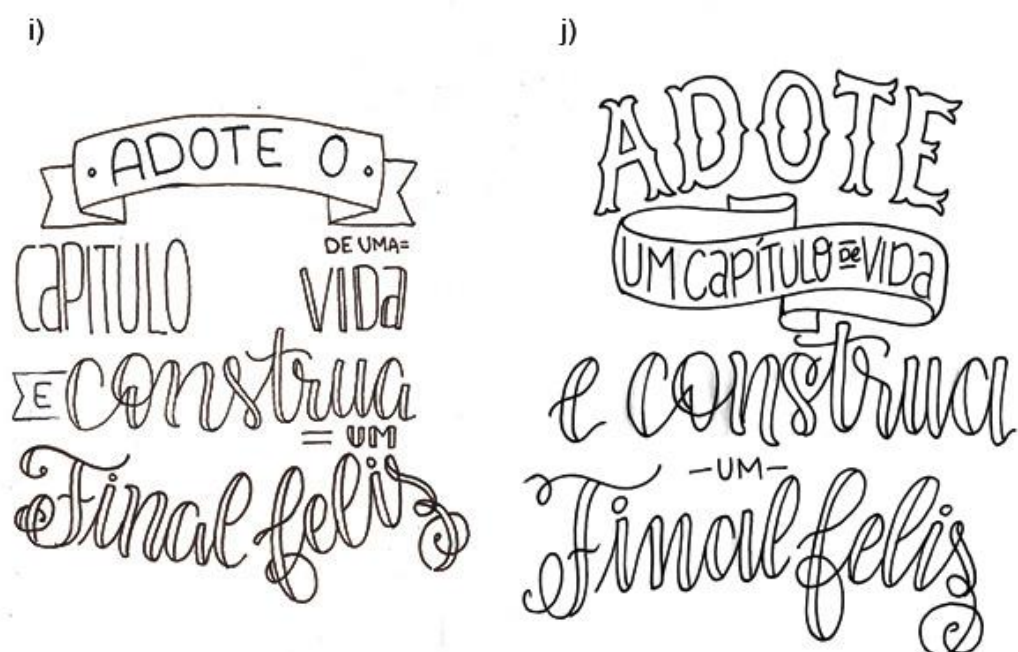 i)
ADOTE O
CaPITULO
DE UMA=
VIDa
E construa
= UM
Final felis
j)
ADOTE
UM CaPÍTULO de VIDa
e construa
-UM-
Final felis